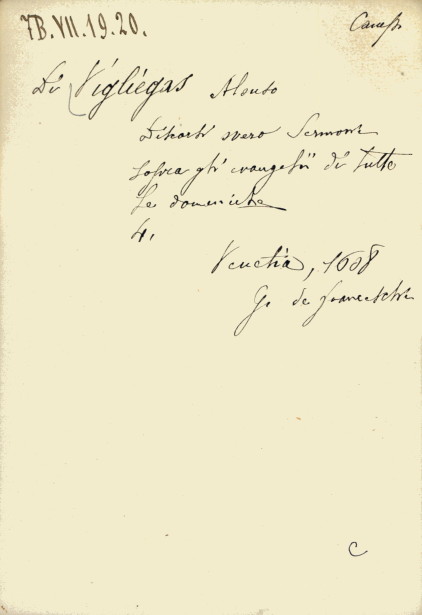 7B.VII.19.20.
Camp
Di Vigliégas Alonso
Discorsi overo Sermoni
sopra gli evangelii di tutte
le domeniche
4.
Venetia, 1608
G. de Franceschi
C